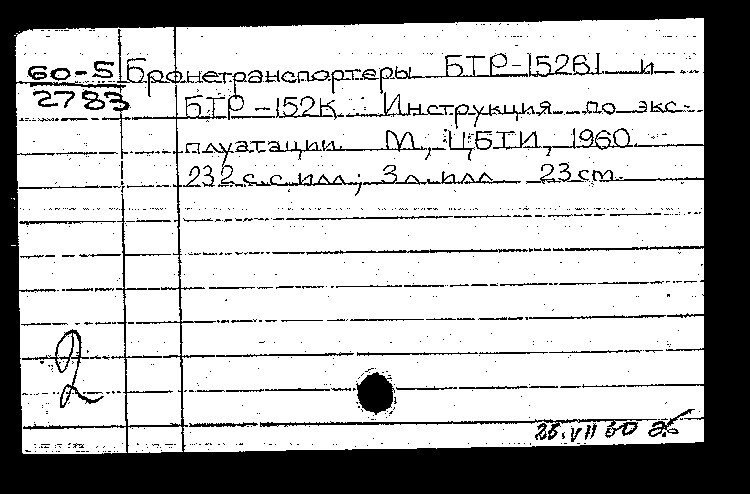 60-5 Бронетранспортеры БТР-152В1 и
2783 БТР-152К. Инструкция по экс-
плуатации. М., ЦБТИ, 1960.
232 с. с илл.; 3 л. илл. 23 cm.
2
VII 60